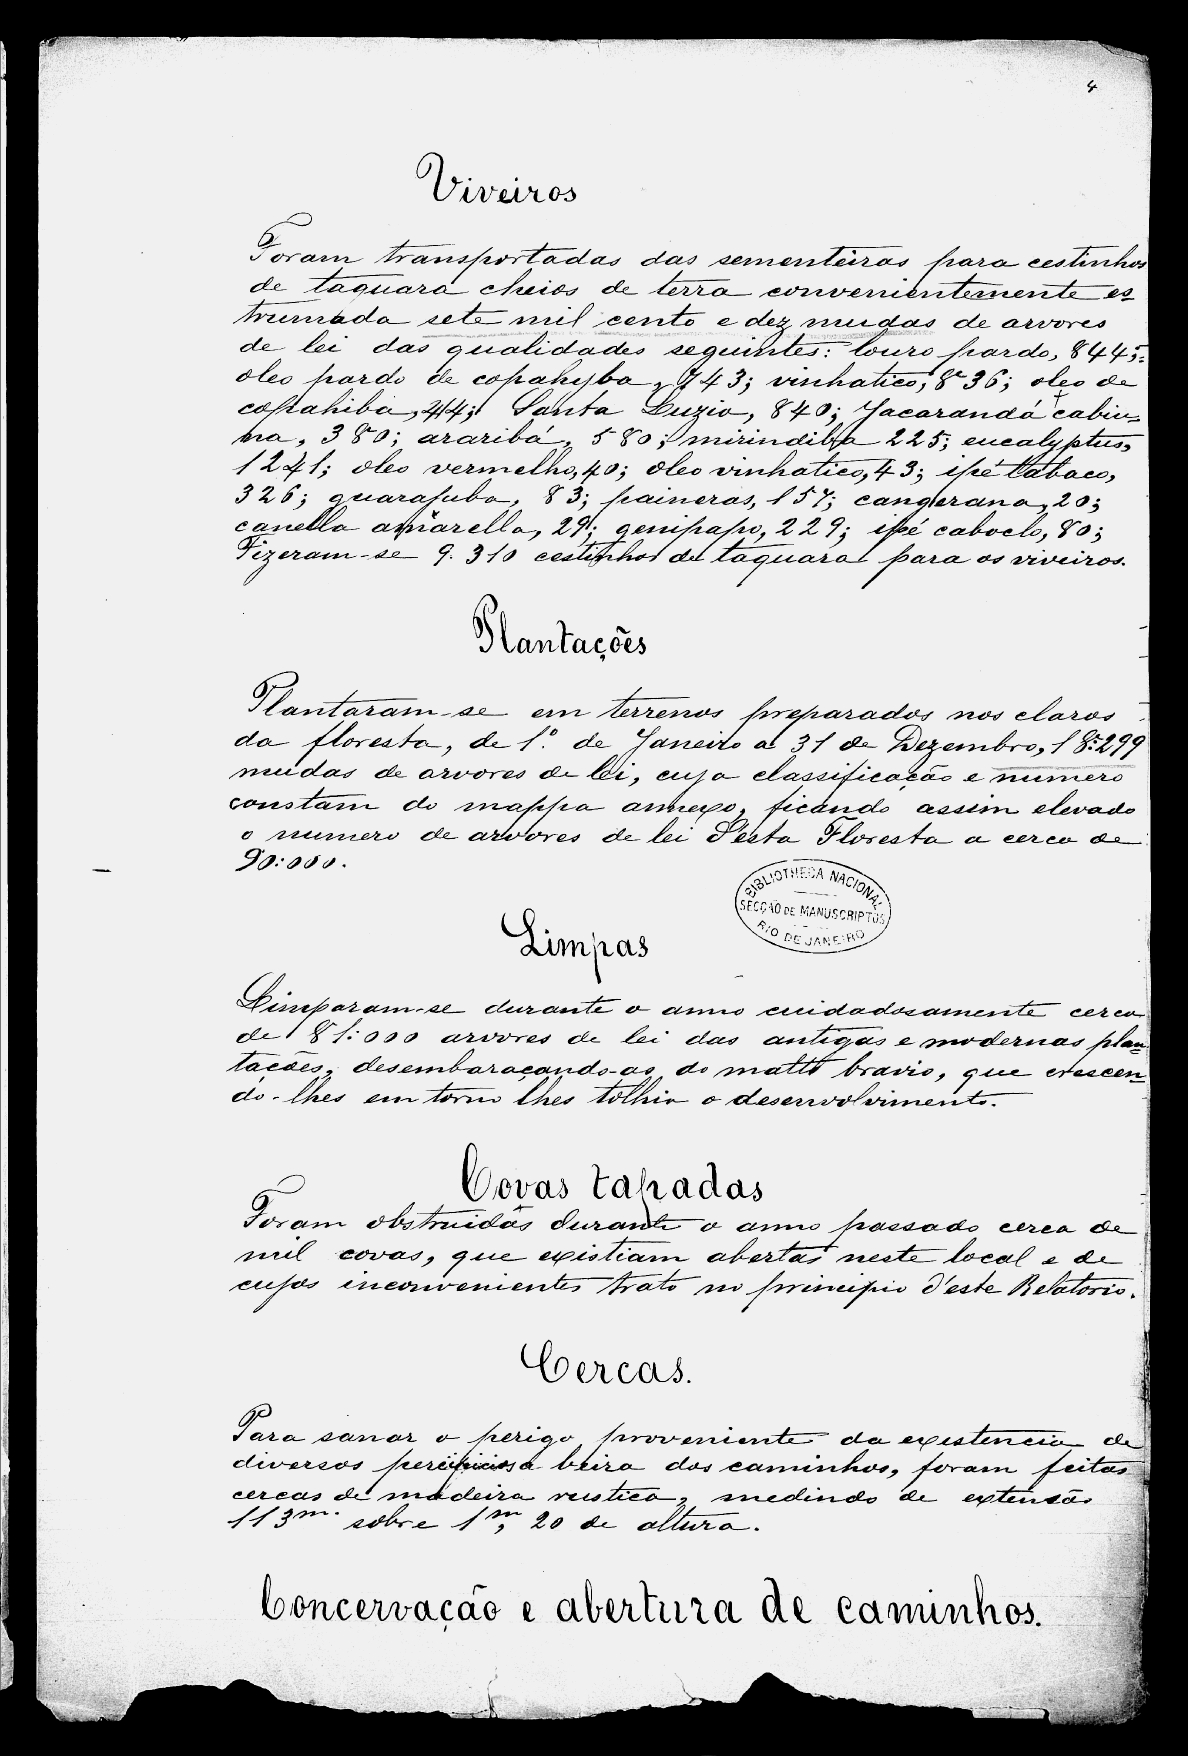 4
Viveiros
Foram transportadas das sementeiras para cestinhos
de taquara cheios de terra convenientemente es
trumada sete mil cento e dez mudas de arvores
de lei das qualidades seguintes: louro pardo, 844;
oleo pardo de copahyba, 743; vinhatico, 836; oleo de
copahiba, 44; Santa Luzia, 840; Jacarandá cabiu-
na, 380; araribá, 580; mirindiba 225; eucalyptus,
1241; oleo vermelho, 40; oleo vinhatico, 43; ipé tabaco,
326; guarajuba, 83; paineras, 157; cangerana, 20;
canella amarella, 29; genipapo, 229; ipé caboclo, 80;
Fizeram-se 9.310 cestinhos de taquara para os viveiros.
Plantações
Plantaram-se em terrenos preparados nos claros
da floresta, de 1º de Janeiro a 31 de Dezembro, 18:299
mudas de arvores de lei, cuja classificação e numero
constam do mappa annexo, ficando assim elevado
o numero de arvores de lei d'esta Floresta a cerca de
90:000.
BIBLIOTHECA NACIONAL
SECÇÃO DE MANUSCRIPTOS
RIO DE JANEIRO
Limpas
Limparam-se durante o anno cuidadosamente cerca
de 81:000 arvores de lei das antigas e modernas plan-
tações, desembaraçando-as do matto bravio, que crescen-
do-lhes em torno lhes tolhia o desenvolvimento.
Covas tapadas
Foram obstruidas durante o anno passado cerca de
mil covas, que existiam abertas neste local e de
cujos inconvenientes trato no principio d'este Relatorio.
Cercas.
Para sanar o perigo proveniente da existencia de
diversos a beira dos caminhos, foram feitas
cercas de madeira rustica, medindo de extensão
113m. sobre 1m, 20 de altura.
Concervação e abertura de caminhos.